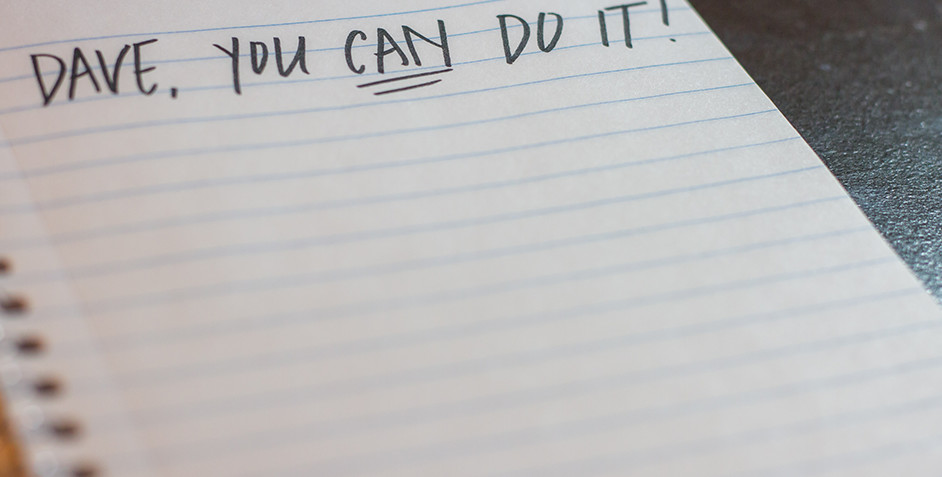 DAVE, YOU CAN DO IT!